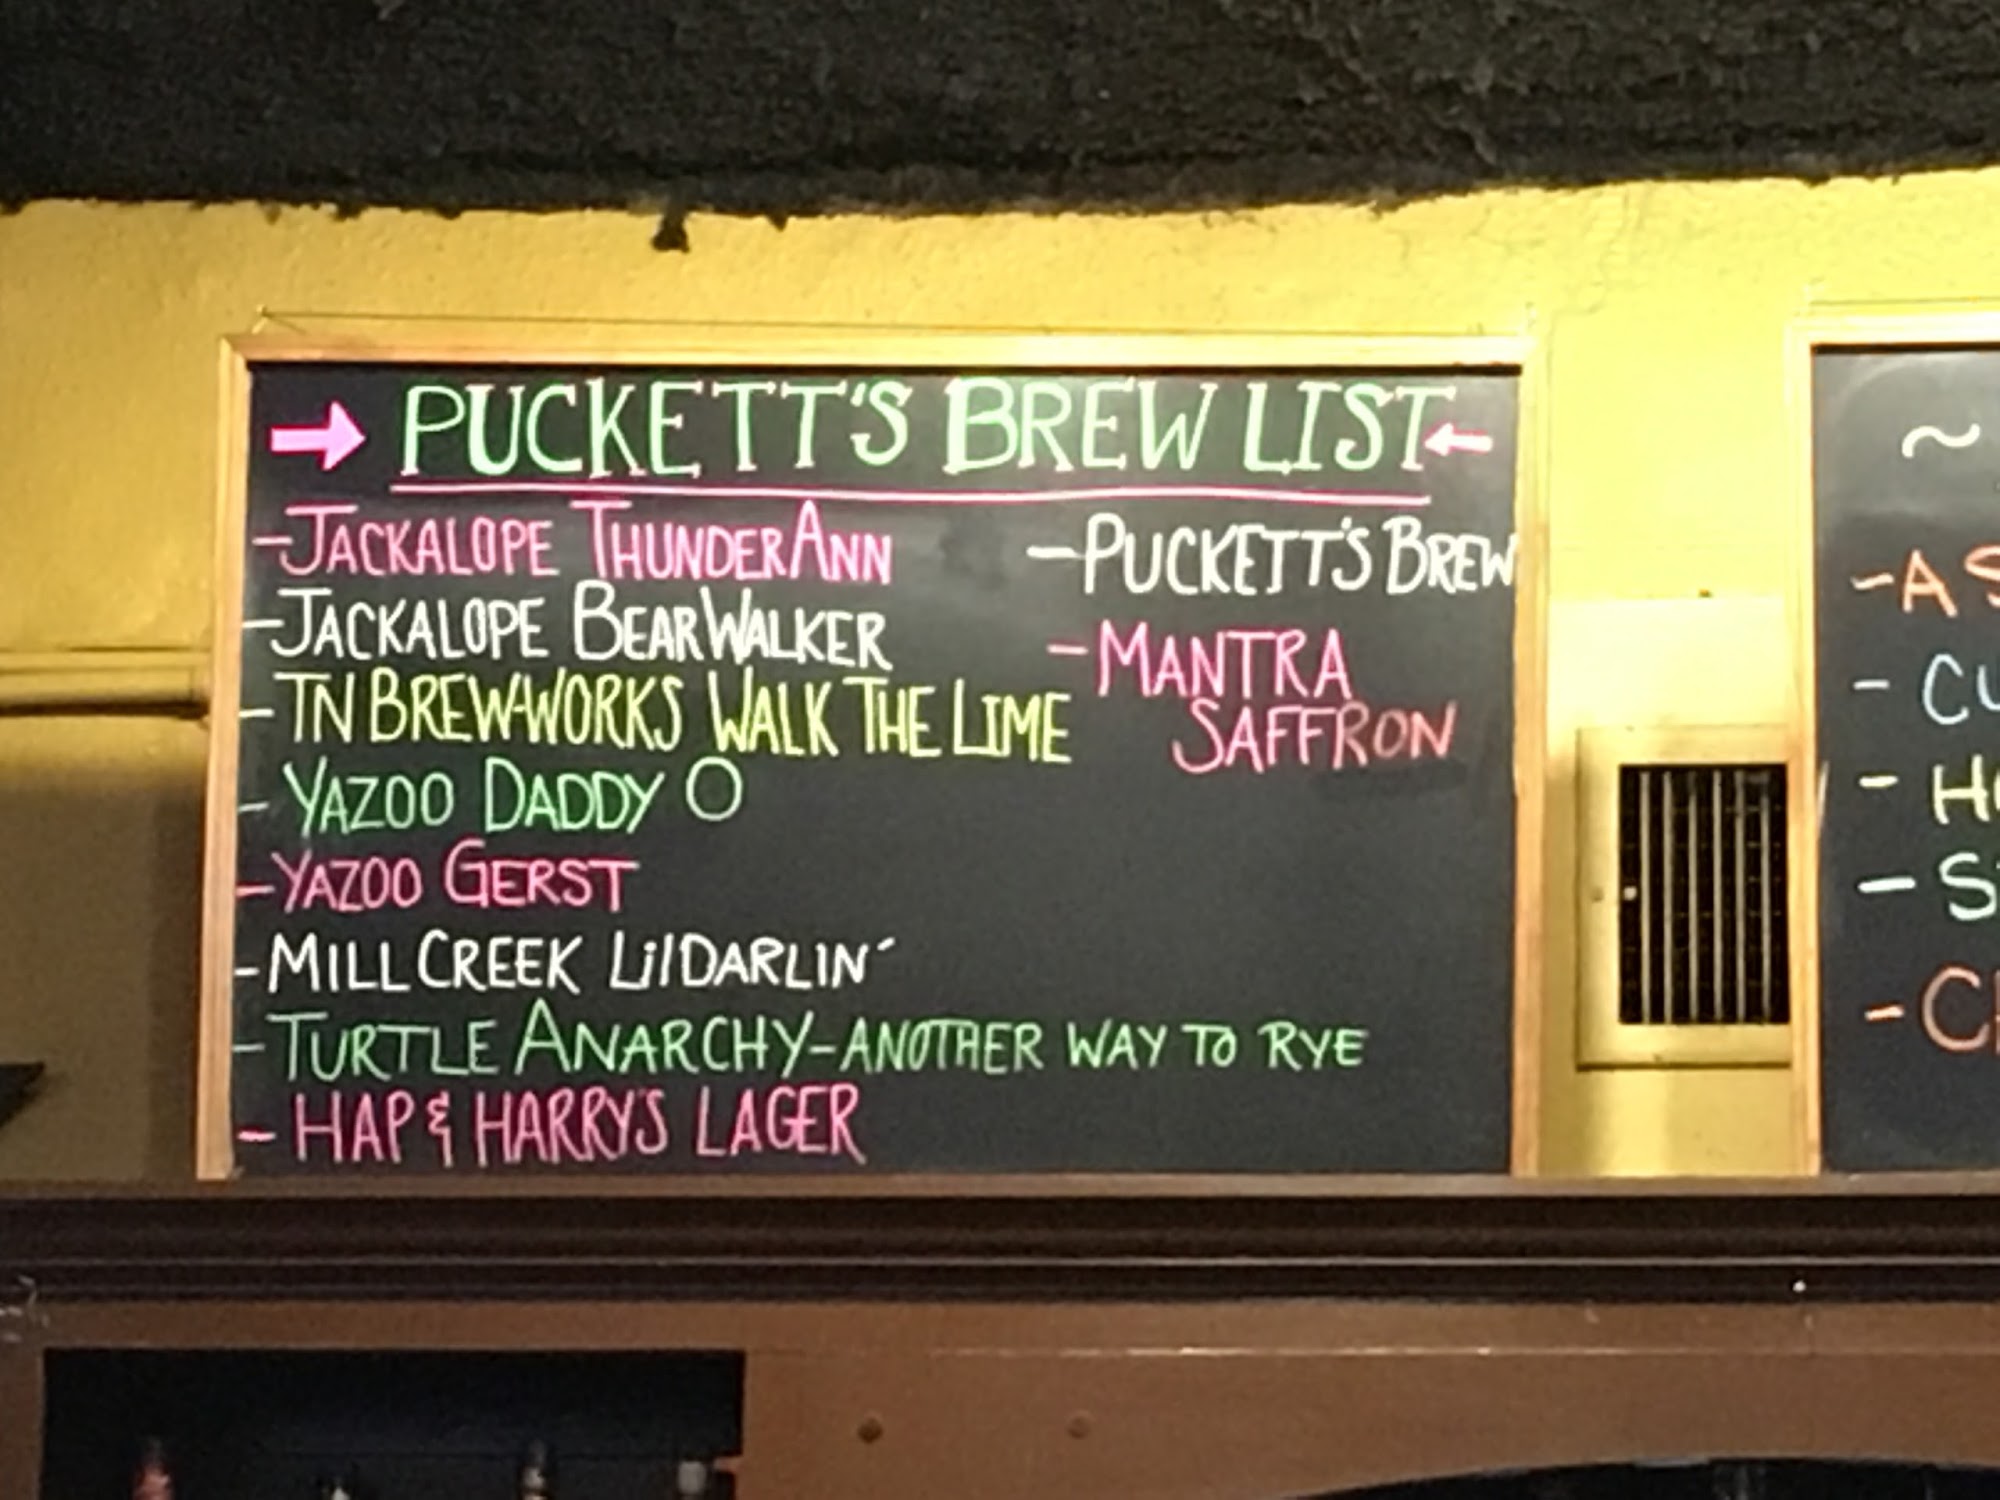 PUCKETT'S BREW LIST
-JACKALOPE THUNDERANN
-JACKALOPE BEARWALKER
-TN BREW-WORKS WALK THE LIME
- YAZOO DADDY O
-YAZOO GERST
-MILL CREEK Li'l DARLIN'
-TURTLE ANARCHY-ANOTHER WAY TO RYE
- HAP & HARRY'S LAGER
-PUCKETT'S BREW
-MANTRA
SAFFRON
~
-A